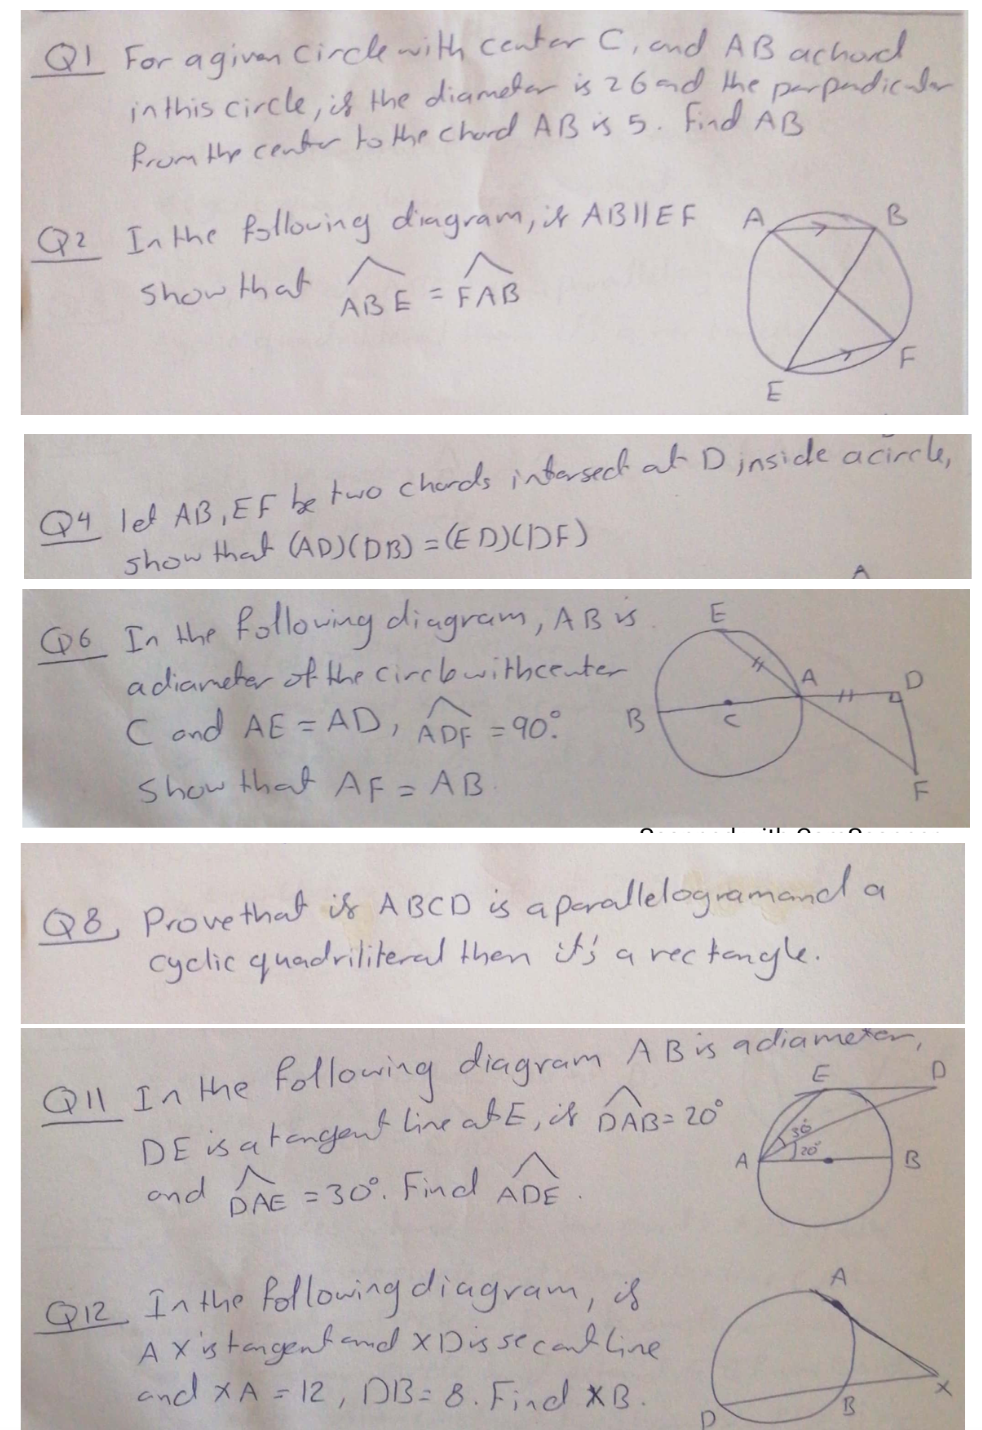 Q1 For a given circle with center C, and AB a chord
in this circle, if the diameter is 26 and the perpendicular
from the center to the chord AB is 5. Find AB
Q2 In the following diagram, if AB∥EF
show that ABE = FAB
A
B
F
E
Q4 let AB, EF be two chords intersect at D inside a circle,
show that (AD)(DB) = (ED)(DF)
A
Q6 In the following diagram, AB is
a diameter of the circle with center
C and AE = AD, ADF = 90°.
Show that AF = AB.
E
A
D
B
C
F
Q8, Prove that if ABCD is a parallelogram and a
cyclic quadriliteral then it's a rectangle.
Q11 In the following diagram AB is a diameter,
DE is a tangent line at E, if DAB = 20°
and DAE = 30°. Find ADE.
E
D
30
20°
A
B
Q12 In the following diagram, if
AX is tangent and XD is secant line
and XA = 12, DB = 8. Find XB.
A
X
B
D